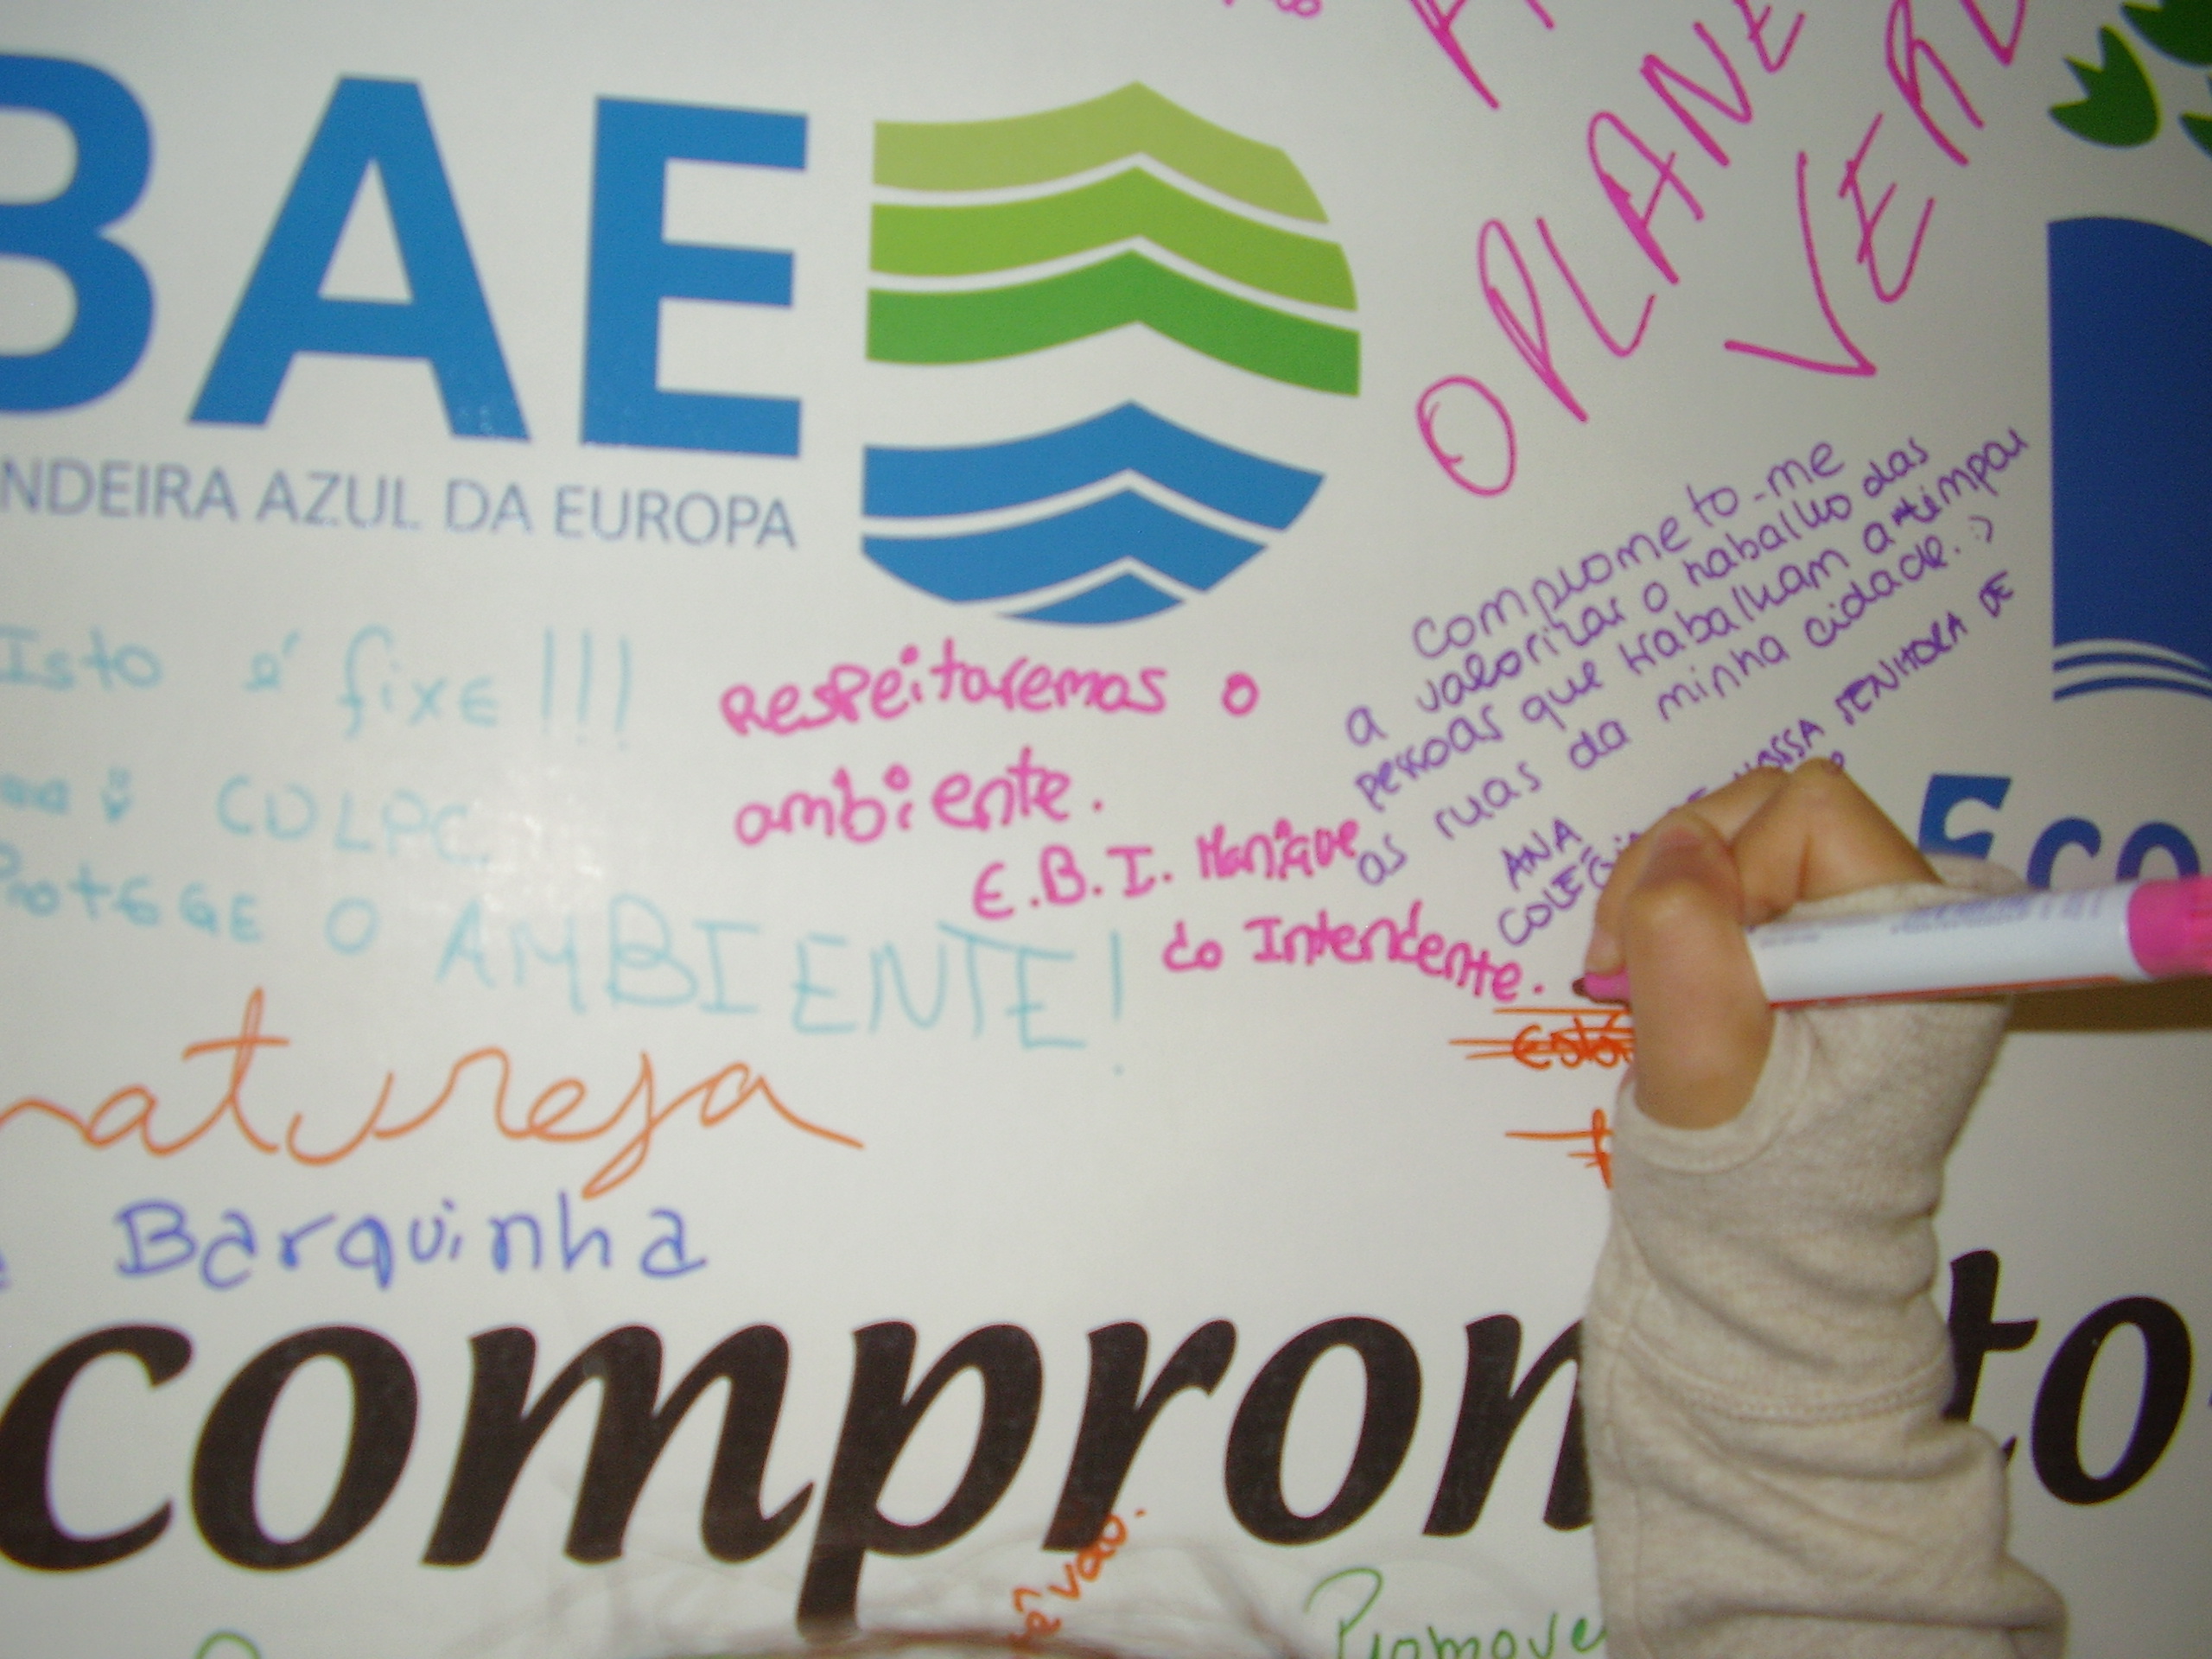 BAE
NDEIRA AZUL DA EUROPA
O PLANE
VERD
Comprometo-me
a valorizar o trabalho das
pessoas que trabalham a limpar
as ruas da minha cidade. :)
ANA
NOSSA SENHORA DE
Isto é fixe!!!
CDLPC
Protege o AMBIENTE!
Respeitaremos o
ambiente.
E.B.I. Manique
do Intendente.
Eco
natureza
Barquinha
comprom to
vão.
Promove